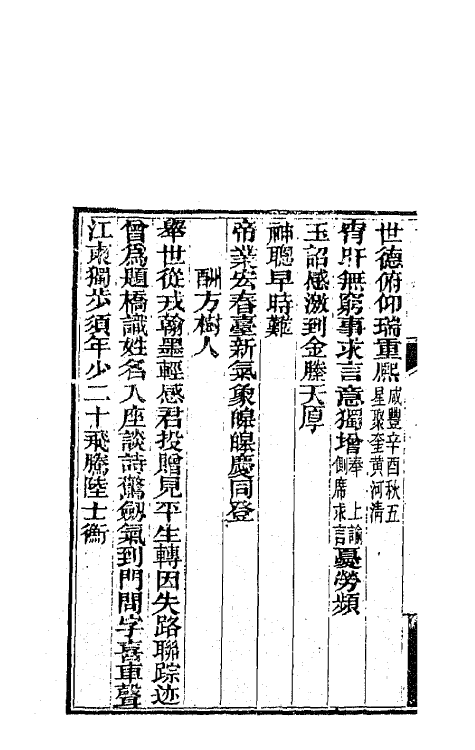 世德俯仰瑞重熙咸豐辛酉秋五星聚奎黃河清
宵旰無窮事求言意獨增奉上諭側席求言憂勞頻
玉詔感激到金縢天厚
神聰早時難
帝業宏春臺新氣象皞皞慶同登
酬方樹人
舉世從戎翰墨輕感君投贈見平生轉因失路聯踪迹
曾爲題橋識姓名入座談詩驚劒氣到門問字喜車聲
江東獨步須年少二十飛騰陸士衡